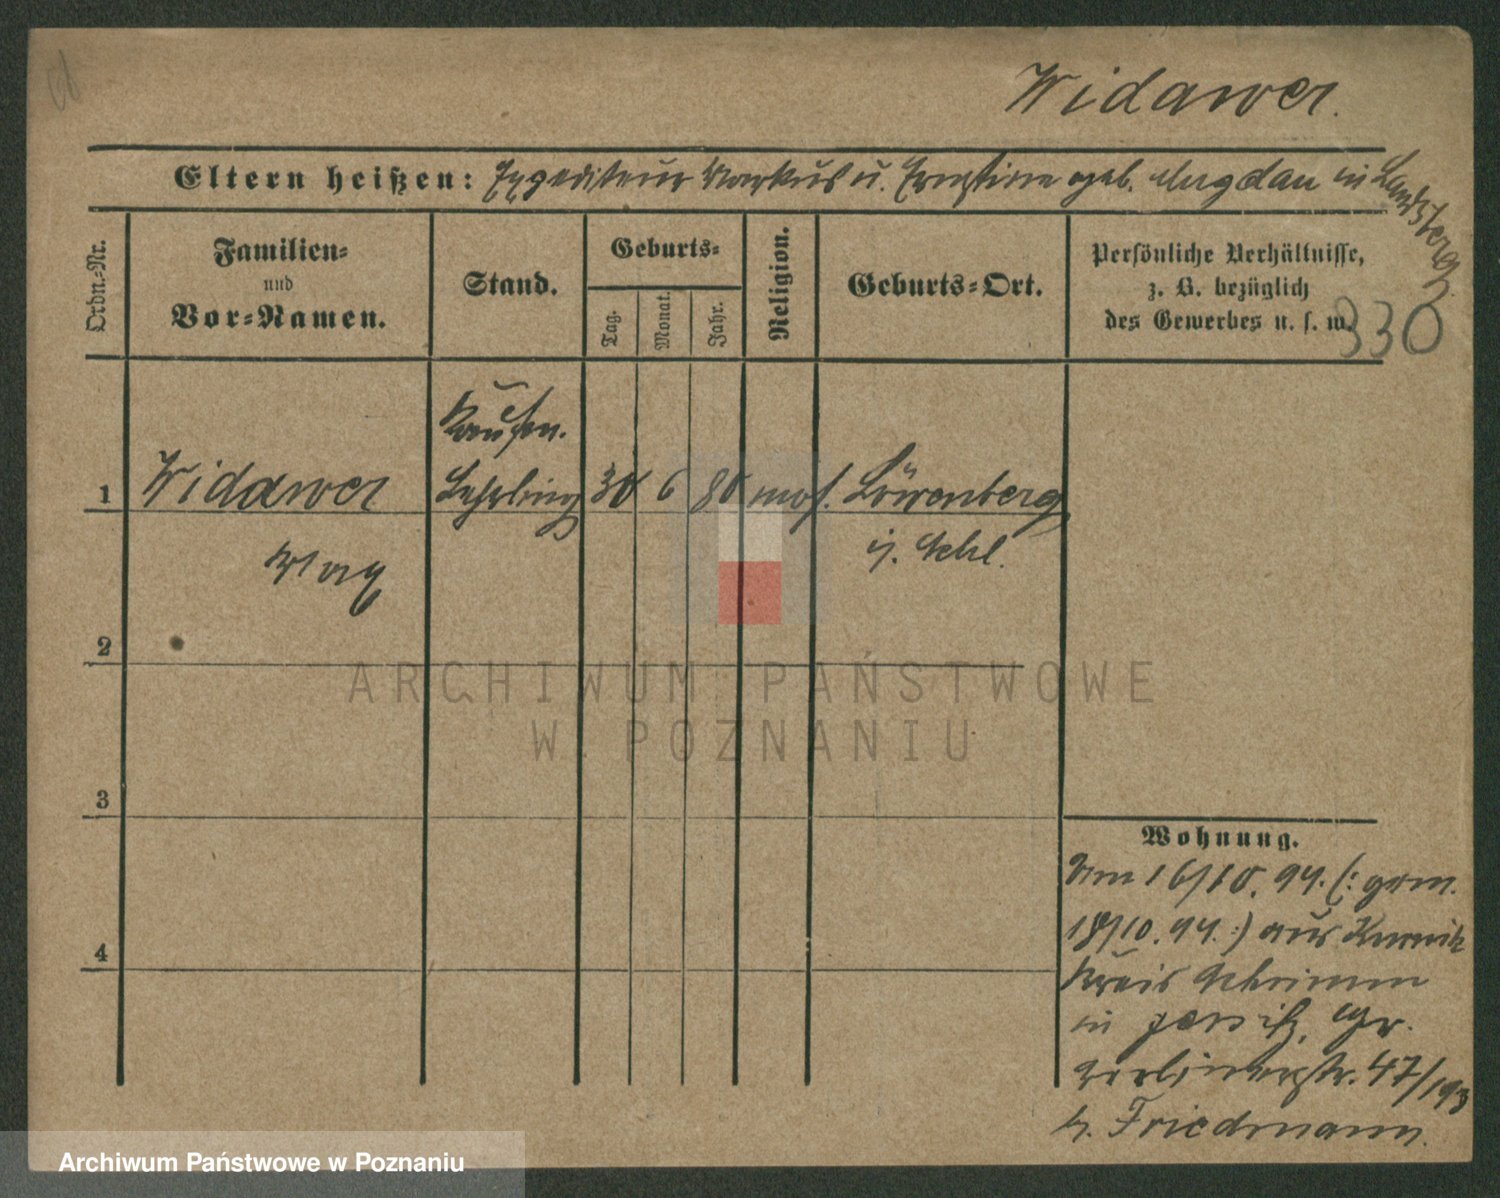 Widawer.
Eltern heißen: Expediteur Markus u. Ernstine geb. Mugdan in Landsberg
330
Ordn.-Nr.
Familien-
und
Vor-Namen.
Stand.
Geburts-
Tag.
Monat.
Jahr.
Religion.
Geburts-Ort.
Persönliche Verhältnisse,
z. B. bezüglich
des Gewerbes u. s. w.
Kaufm.
1 Widawer Lehrling 30 6 80 mos. Löwenberg
Max i. Schl.
2
3
4
ARCHIWUM PAŃSTWOWE
W POZNANIU
Wohnung.
Am 16/10. 94. (: gem.
18/10. 94. :) aus Kurnik
Kreis Schrimm
in Jersitz, Gr.
Berlinerstr. 47/193
b. Friedmann.
Archiwum Państwowe w Poznaniu